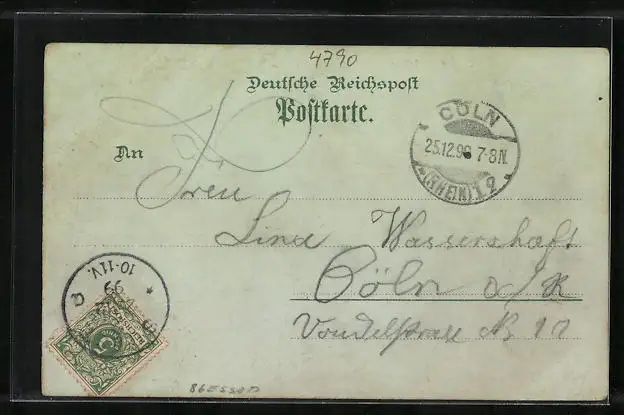 4790
Deutsche Reichspost
Postkarte.
An
CÖLN
25.12.99 7-8N.
(RHEIN) 12
Lina Wassershaft
Cöln a/R
Vondelstrasse No 10
10-11V.
99
86ESSOD